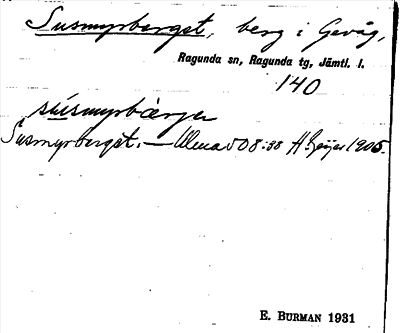 Susmyrberget, berg i Gevåg,
Ragunda sn, Ragunda tg, Jämtl. l.
140
súsmyrbærje
Susmyrberget. — Alma 508:38 H. Geijer 1905.
E. BURMAN 1931